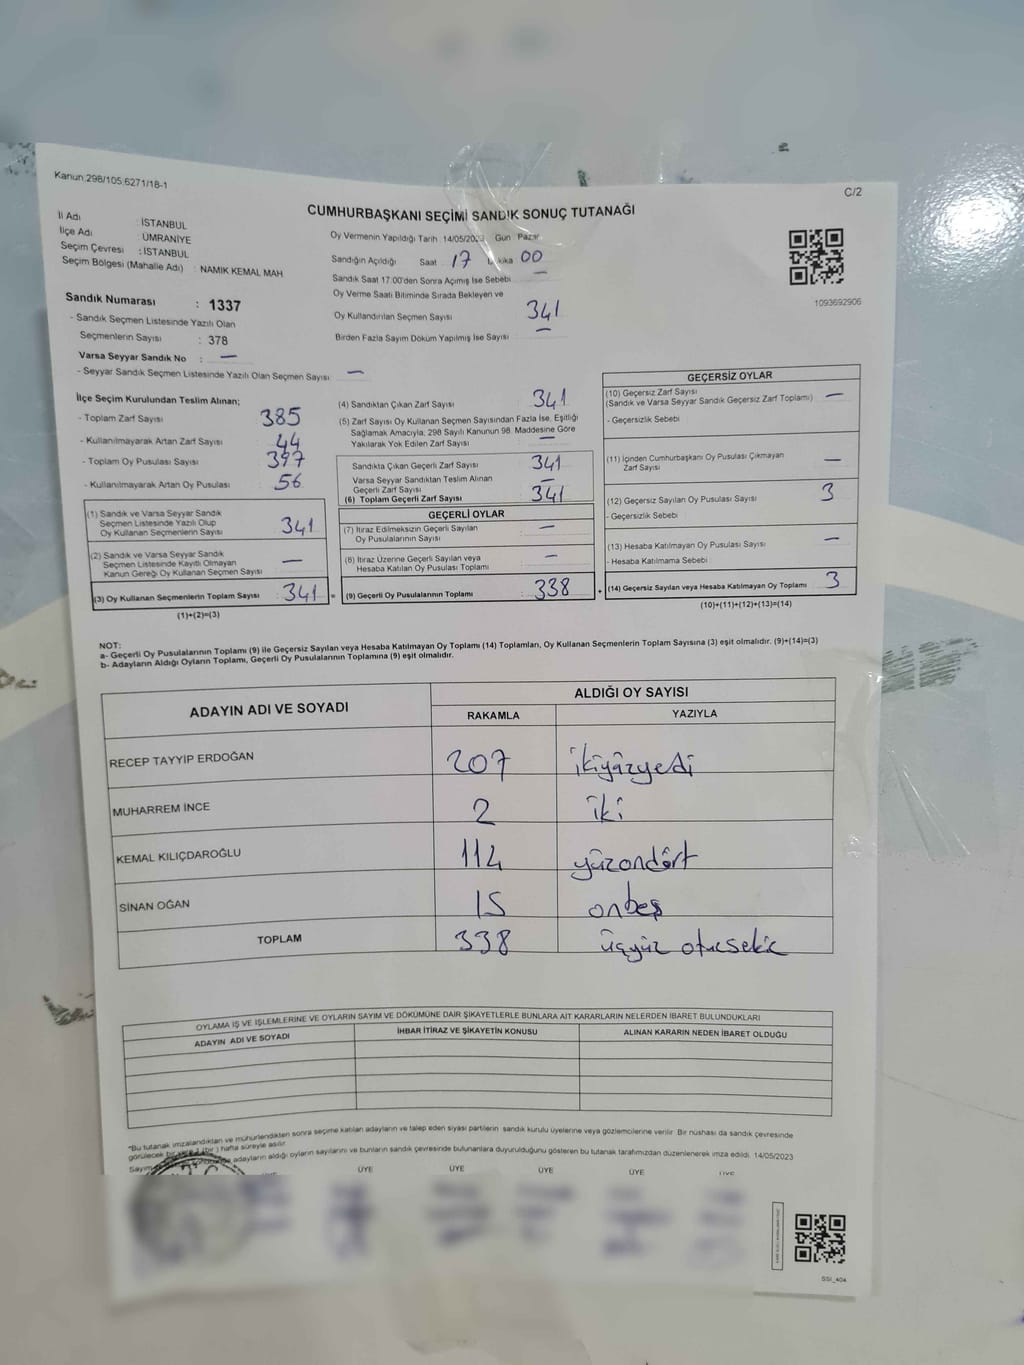 Kanun:298/105;6271/18-1
C/2
CUMHURBAŞKANI SEÇİMİ SANDIK SONUÇ TUTANAĞI
İl Adı : İSTANBUL
İlçe Adı : ÜMRANİYE
Seçim Çevresi : İSTANBUL
Seçim Bölgesi (Mahalle Adı) : NAMIK KEMAL MAH
Sandık Numarası : 1337
- Sandık Seçmen Listesinde Yazılı Olan
Seçmenlerin Sayısı : 378
Varsa Seyyar Sandık No : —
- Seyyar Sandık Seçmen Listesinde Yazılı Olan Seçmen Sayısı: —
Oy Vermenin Yapıldığı Tarih :14/05/2023 Gün : Pazar
Sandığın Açıldığı Saat : 17 Dakika 00
Sandık Saat 17.00'den Sonra Açımış İse Sebebi —
Oy Verme Saati Bitiminde Sırada Bekleyen ve
Oy Kullandırılan Seçmen Sayısı 341
Birden Fazla Sayım Döküm Yapılmış İse Sayısı : —
1093692906
İlçe Seçim Kurulundan Teslim Alınan;
- Toplam Zarf Sayısı : 385
- Kullanılmayarak Artan Zarf Sayısı : 44
- Toplam Oy Pusulası Sayısı : 397
- Kullanılmayarak Artan Oy Pusulası : 56
(1) Sandık ve Varsa Seyyar Sandık
Seçmen Listesinde Yazılı Olup
Oy Kullanan Seçmenlerin Sayısı : 341
(2) Sandık ve Varsa Seyyar Sandık
Seçmen Listesinde Kayıtlı Olmayan
Kanun Gereği Oy Kullanan Seçmen Sayısı : —
(3) Oy Kullanan Seçmenlerin Toplam Sayısı : 341 =
(1)+(2)=(3)
(4) Sandıktan Çıkan Zarf Sayısı : 341
(5) Zarf Sayısı Oy Kullanan Seçmen Sayısından Fazla İse, Eşitliği
Sağlamak Amacıyla; 298 Sayılı Kanunun 98. Maddesine Göre
Yakılarak Yok Edilen Zarf Sayısı : —
Sandıkta Çıkan Geçerli Zarf Sayısı : 341
Varsa Seyyar Sandıktan Teslim Alınan
Geçerli Zarf Sayısı : —
(6) Toplam Geçerli Zarf Sayısı : 341
GEÇERLİ OYLAR
(7) İtiraz Edilmeksizin Geçerli Sayılan
Oy Pusulalarının Sayısı : —
(8) İtiraz Üzerine Geçerli Sayılan veya
Hesaba Katılan Oy Pusulası Toplamı : —
(9) Geçerli Oy Pusulalarının Toplamı : 338 +
GEÇERSİZ OYLAR
(10) Geçersiz Zarf Sayısı
(Sandık ve Varsa Seyyar Sandık Geçersiz Zarf Toplamı) : —
- Geçersizlik Sebebi
(11) İçinden Cumhurbaşkanı Oy Pusulası Çıkmayan
Zarf Sayısı : —
(12) Geçersiz Sayılan Oy Pusulası Sayısı : 3
- Geçersizlik Sebebi
(13) Hesaba Katılmayan Oy Pusulası Sayısı : —
- Hesaba Katılmama Sebebi
(14) Geçersiz Sayılan veya Hesaba Katılmayan Oy Toplamı : 3
(10)+(11)+(12)+(13)=(14)
NOT:
a- Geçerli Oy Pusulalarının Toplamı (9) ile Geçersiz Sayılan veya Hesaba Katılmayan Oy Toplamı (14) Toplamları, Oy Kullanan Seçmenlerin Toplam Sayısına (3) eşit olmalıdır. (9)+(14)=(3)
b- Adayların Aldığı Oyların Toplamı, Geçerli Oy Pusulalarının Toplamına (9) eşit olmalıdır.
ADAYIN ADI VE SOYADI
ALDIĞI OY SAYISI
RAKAMLA YAZIYLA
RECEP TAYYİP ERDOĞAN 207 ikiyüzyedi
MUHARREM İNCE 2 iki
KEMAL KILIÇDAROĞLU 114 yüzondört
SİNAN OĞAN 15 onbeş
TOPLAM 338 üçyüz otuzsekiz
OYLAMA İŞ VE İŞLEMLERİNE VE OYLARIN SAYIM VE DÖKÜMÜNE DAİR ŞİKAYETLERLE BUNLARA AİT KARARLARIN NELERDEN İBARET BULUNDUKLARI
ADAYIN ADI VE SOYADI İHBAR İTİRAZ VE ŞİKAYETİN KONUSU ALINAN KARARIN NEDEN İBARET OLDUĞU
"Bu tutanak imzalandıktan ve mühürlendikten sonra seçime katılan adayların ve talep eden siyasi partilerin sandık kurulu üyelerine veya gözlemcilerine verilir. Bir nüshası da sandık çevresinde
görülecek bir yere 1 (bir) hafta süreyle asılır.
Sayım adayların aldığı oyların sayılarını ve bunların sandık çevresinde bulunanlara duyurulduğunu gösteren bu tutanak tarafımızdan düzenlenerek imza edildi. 14/05/2023
ÜYE ÜYE ÜYE ÜYE ÜYE
SSI_404